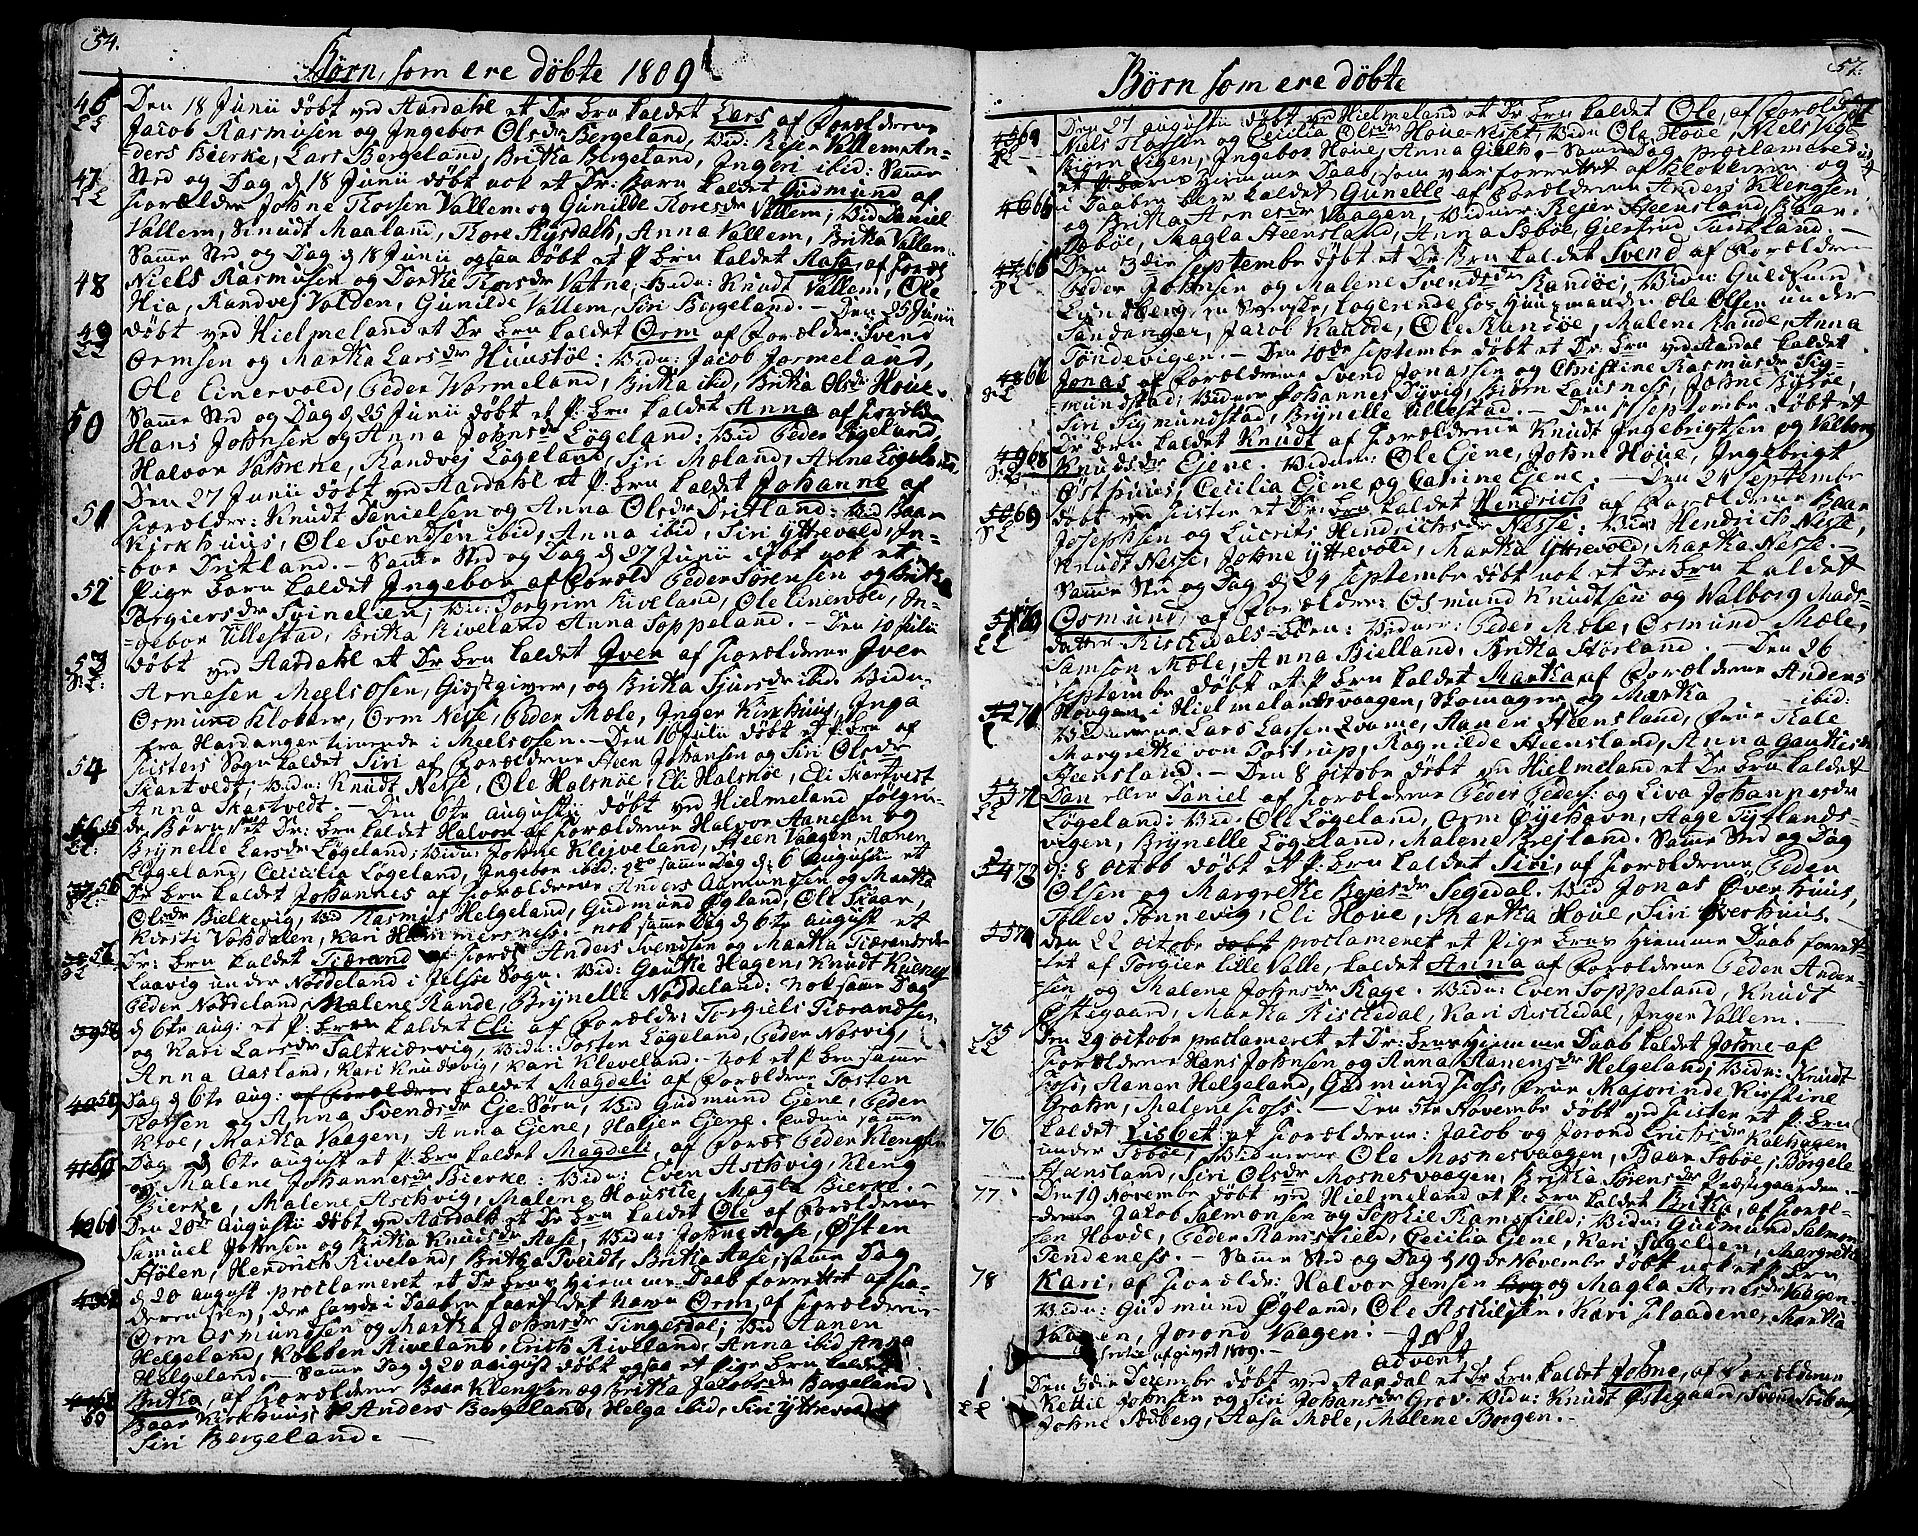 54.
Børn, som ere döbte 1809
46 Den 18 Junii döbt ved Aardahl et Dr: Brn kaldet Lars af Forældrene
Jacob Rasmusen og Ingebor Olsdr Bergeland, Vid: Reier Vallem, An-
ders Bierke, Lars Bergeland, Britha Bergeland, Ingeri ibid: Samme
47 Sted og Dag d 18 Junii döbt nok et Dr: Barn kaldet Gudmund af
Forælder Johne Torsen Vallem og Gunilde Toresdr Vallem; Vid Daniel
Vallem, Knudt Maaland, Tore Rÿsdahl, Anna Vallem, Britha Vallem
Samme Sted og Dag d 18 Junii ogsaa döbt et P. Brn kaldet Aasa af Foræl
48 Niels Rasmusen og Dorthe Torsdr Vatne, Vidn: Knudt Vallem, Ole
Hia, Randvej Volden, Gunilde Vallem, Siri Bergeland. – Den 25 Junii
49 döbt ved Hielmeland et Dr Brn kaldet Orm af Forælder: Svend
Ormsen og Martha Larsdr Huustöe: Vidn: Jacob Jormeland,
Ole Einervold, Peder Wormeland, Britha ibid, Britha Olsdr Houe.
50 Samme Sted og Dag d 25 Junii döbt et P: Brn kaldet Anna af Forælder
Hans Johnsen og Anna Johnsdr Løgeland: Vid Peder Løgeland,
Halvor Vahrene, Randvej Løgeland, Siri Mæland, Anna Løgeland
Den 27 Junii döbt ved Aardahl et P: Brn kaldet Johanne af
51 Forælder: Knudt Danielsen og Anna Olsdr Tritland: Vid Baar
Kirkhuus, Ole Svendsen ibid, Anna ibid, Siri Ÿttrevold, In-
bor Tritland. – Samme Sted og Dag d 27 Junii döbt nok et
52 Pige Barn kaldet Ingebor af Foræld Peder Sørensen og Britha
Torgiersdr Svinelien; Vid: Torgrim Riveland, Ole Einervold, In-
gebor Tillestad, Britha Riveland Anna Soppeland. – Den 10 Julii
53 döbt ved Aardahl et Dr Brn kaldet Iver af Forældrene Iver
Arnesen Meelsosen, Giestgiver, og Britha Siursdr ibid. Vidn:
Osmund Klokker, Orm Nesse, Peder Mæle, Inger Kirkhuus, Inga
fra Hardanger tienende i Meelsosen. – Den 16 Julii döbt et P: Brn af
54 Fisters Sogn kaldet Siri af Forældrene Steen Johansen og Siri Olsdr
Skartvedt, Vidn: Knudt Nesse, Ole Halsnøe, Eli Halsnøe, Eli Skartvedt
Anna Skartvedt. – Den 6te augustii döbt ved Hielmeland følgen-
55 de Børn: 1st et Dr: Brn kaldet Halvor af Forældrene Halvor Aanensen og
Brÿnelle Larsdr Løgeland: Vidn: Johne Klejveland, Steen Vaagen, Aanen
Løgeland, Cecicilia Løgeland, Ingebor ibid: 2do samme Dag d: 6 Augustii et
56 Dr Brn kaldet Johannes af Forældrene Anders Aamundsen og Martha
Olsdr Bielkevig, Vid Rasmus Helgeland, Gudmund Øgland, Ole Skaar,
Kirsti Vohsdalen, Kari Hammersness. – nok samme Dag d: 6te august et
Dr: Brn kaldet Tiærand af Foræl: Anders Svendsen og Martha Tiærandsdr
Laavig under Nøddeland i Jelsøe Sogn. Vid: Gautke Hagen, Knudt
Peder Nøddeland, Malene Rande, Brÿnelle Nøddeland: Nok samme Dag
d 6te aug: et P: Brn kaldet Eli af Forældr: Torgiels Tiærandsen
og Kari Larsdr Saltkiærvig, Vidn: Tosten Løgeland, Peder Nøsvig,
Anna Aasland, Kari Knudsvig, Kari Kleveland. – Nok et P. Brn samme
59 Dag d 6te aug: kaldet Magdeli af Forældrene Tosten
Torsen og Anna Svendsdr Eje-Sørn, Vid Gudmund Ejene, Peder
Kroe, Martha Vaagen, Anna Ejene, Halfer Ejene. Endnu samme
60 Dag d 6te august et P: Brn kaldet Magdeli, af Foræl Peder Klengsen
og Malene Johannesdr Bierke: Vidn: Even Aschvig, Kleng
Bierke, Malene Aschvig, Malene Houske, Magla Bierke. –
61 Den 20de augustii döbt ved Aardahl et Dr Brn kaldet Ole af Forældrene
Samuel Johnsen og Britha Knudsdr Aase, Vidn: Johne Aase, Østen
Hølen, Hendrich Riveland, Britha Tveidt, Britha Aase; samme Dag
d 20 august proclameret et Dr Brns Hiemme Daab forrettet af Fa-
deren selv, der havde i Daaben faaet det navn Orm af Forældrene
Orm Osmundsen og Martha Johnsdr Tingesdal; Vid Aanen
Helgeland, Kolben Riveland, Erich Riveland, Anna ibid Anna
Helgeland. – Samme Dag d 20 august döbt ogsaa et Pige Brn kaldet
Britha, af Forældrene Baar Klengsen og Britha Jacobsdr Bergeland
Baar Kirkhuus, Anders Bergeland, Helga ibid, Siri Ÿttrevold
Siri Bergeland. –
57.
Børn som ere döbte
Den 27 augustii döbt ved Hielmeland et Dr Brn kaldet Ole, af Foræld
Niels Tossen og Cecilia Olsdr Houe-Neset, Vidn: Ole Houe, Niels Vig
Skiørn Vigen, Ingebor Houe, Anna Giilh. – Samme Dag proclameret
et P. Barns Hiemme Daab, som var forrettet af Klokkeren og
66 i Daaben blev kaldet Gunelle af Forældrene Anders Klengsen
og Britha Arnesdr Vaagen, Vidner Rejer Steensland, Baar
Sæbøe, Magla Steensland, Anna Sæbøe, Giertrud Tuntland. –
Den 3die Septembr döbt et Dr Brn kaldet Svend af Forældrene
Peder Johnsen og Malene Svendsdr Randøe, Vidn: Guldbrun
Lundberg, en Svenske, logerende hos Huusmanden Ole Olsen under
Sandanger, Jacob Randøe, Ole Randøe, Malene Rande, Anna
Tøndevigen. – Den 10de Septembr döbt et Dr Brn ved Aardal kaldet
Jonas af Forældrene Svend Jonassen og Christine Rasmusdr Sig-
mundstad; Vidner Johannes Dÿvig, Biørn Lausness, Johne Buføe,
Siri Sigmundstad, Brÿnelle Tillestad. – Den Septembr döbt et
Dr Brn kaldet Knudt af Forældrene Knudt Ingebrigtsen og Valborg
68 Knudsdr Ejene. Vidn: Ole Ejene, Johne Houe, Ingebrigt
Østhuus, Cecilia Ejene og Catrine Ejene. – Den 24 Septembr
69 döbt ved Fister et Dr: Brn kaldet Hendrich af Forældrene Baar
Josephsen og Lucrits Hendrichsdr Nesse: Vidn: Hendrich Nesse,
Knudt Nesse, Johne Ÿttrevold, Martha Ÿttrevold, Martha Nesse. –
Samme Sted og Dag d 24 Septembr döbt nok et Dr: Brn kaldet
70 Osmund, af Forælder: Osmund Knudtsen og Walborg Mads-
datter Ristedals-Eien: Vidner: Peder Mæle, Osmund Mæle,
Samson Mæle, Anna Bielland, Britha Størland. – Den 26
Septembr döbt et P: Brn kaldet Martha af Forældrene Anders
71 Hougen i Hielmelandsvaagen, Skomager, og Martha ibid:
Vidnerne Lars Larsen Lomme, Aanen Steensland, Frue Kale
Margrethe von Tostrup, Ragnilde Steensland, Anna Gautkesdr
Steensland. – Den 8 octobr döbt ved Hielmeland et Dr Brn kaldet
72 Dan eller Daniel af Forældrene Peder Peders: og Liva Johannesdr
Løgeland: Vid: Ole Løgeland, Orm Øÿehavn, Aage Tÿtlands-
vigen, Brÿnelle Løgeland, Malene Brejland. Samme Sted og Dag
73 d: 8 octob döbt et P: Brn kaldet Siri, af Forældrene Peder
Olsen og Margrethe Rejersdr Segedal. Vid Jonas Øverhuus,
Tølles Tønnevig, Eli Houe, Martha Houe, Siri Øverhuus. –
74 Den 22 octobr proclameret et Pige Brns Hiemme Daab forret-
tet af Torgier lille Valle, kaldet Anna af Forældrene Peder Ander-
sen og Malene Johnsdr Rage. Vidn: Even Soppeland, Knudt
Østigaard, Martha Ristedal, Kari Ristedal, Inger Vallem. –
75 Den 29 octobr proclameret et Dr: Brns Hiemme Daab kaldet Johne af
Forældrene Hans Johnsen og Anna Aanensdr Helgeland; Vidn: Knudt
Foss, Aanen Helgeland, Gudmund Foss, Frue Majorinde Kirstine
Grahn, Malene Foss. – Den 5te Novembr döbt ved Fister et P: Brn
76 kaldet Lisbet af Forældrene: Jacob og Jorond Erichsdr Kalhagen
under Sæbøe, Vidnerne Ole Mosnesvaagen, Baar Sæbøe, Børgele
Steensland, Siri Olsdr Mosnesvaagen, Britha Sørensdr Præstegaarden. –
77 Den 19 Novembr döbt ved Hielmeland et P: Brn kaldet Britha, af Foræl-
drene Jacob Salmonsen og Sophie Ramsfield; Vidn: Gudmund Salmon
sen Hovde, Peder Ramsfield, Cecilia Ejene, Kari Ingelsen, Margrethe
Tendeness. – Samme Sted og Dag d 19de Novembr döbt nok et P. Brn
78 Kari, af Forælde: Halvor Jensen og Magla Arnesdr Vaagen.
Vidn: Gudmund Øgland, Ole Askildsen, Kari Flaadene, Martha
Vaagen, Jorond Vaagen. – J N J
afgivet 1809. –
Advent
1 Den 3die Decembr döbt ved Aardal et Dr: Brn kaldet Johne, af Forældrene
Kettil Johnsen og Siri Johansdr Grov. Vidn: Knudt Østigaard, Svend
Johne Sedberg, Aasa Mæle, Malene Borgen. –